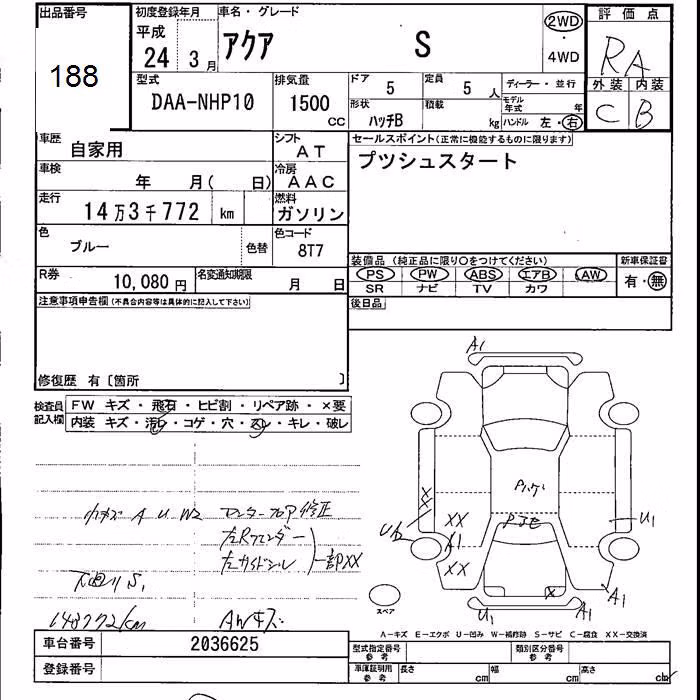 出品番号
188
初度登録年月
平成
24 3月
車名・グレード
アクア S
2WD
・
4WD
評価点
RA
外装 内装
C B
型式
DAA-NHP10
排気量
1500
CC
ドア
5
定員
5 人
形状
ハッチB
積載
kg
ディーラー・並行
モデル年式 年
ハンドル 左・右
車歴
自家用
シフト
AT
セールスポイント(正常に機能するものに限ります)
プツシュスタート
車検
年 月( 日)
冷房
AAC
走行
14万3千772 km
燃料
ガソリン
色
ブルー
色替
色コード
8T7
装備品 (純正品に限り○をつけてください)
PS PW ABS エアB AW
SR ナビ TV カワ
新車保証書
有・無
R券
10,080 円
名変通知期限
月 日
後日品
注意事項申告欄(不具合内容等は具体的に記入して下さい)
修復歴 有〔箇所 〕
検査員記入欄
FW キズ・飛石・ヒビ割・リペア跡・×要
内装 キズ・汚れ・コゲ・穴・スレ・キレ・破レ
小キズ A U W2
センターフロア修正
左Rフェンダー
左サイドシル
一部XX
下廻りS1
143772km
AWキズ
A1
X
XX
A1
XX
U1
X
U1
A1
A1
スペア
A-キズ E-エクボ U-凹み W-補修跡 S-サビ C-腐食 XX-交換済
車台番号
2036625
登録番号
型式指定番号
参考
類別区分番号
参考
車庫証明用
参考
長さ cm
幅 cm
高さ cm